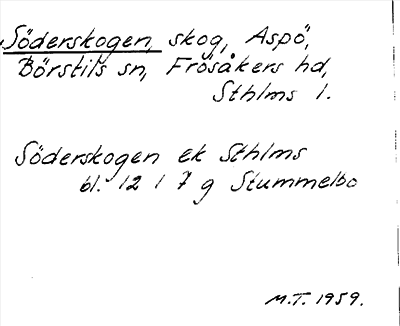 Söderskogen, skog, Aspö,
Börstils sn, Frösåkers hd,
Sthlms l.
Söderskogen ek Sthlms
bl. 12 I 7 g Stummelbo
M.T. 1959.